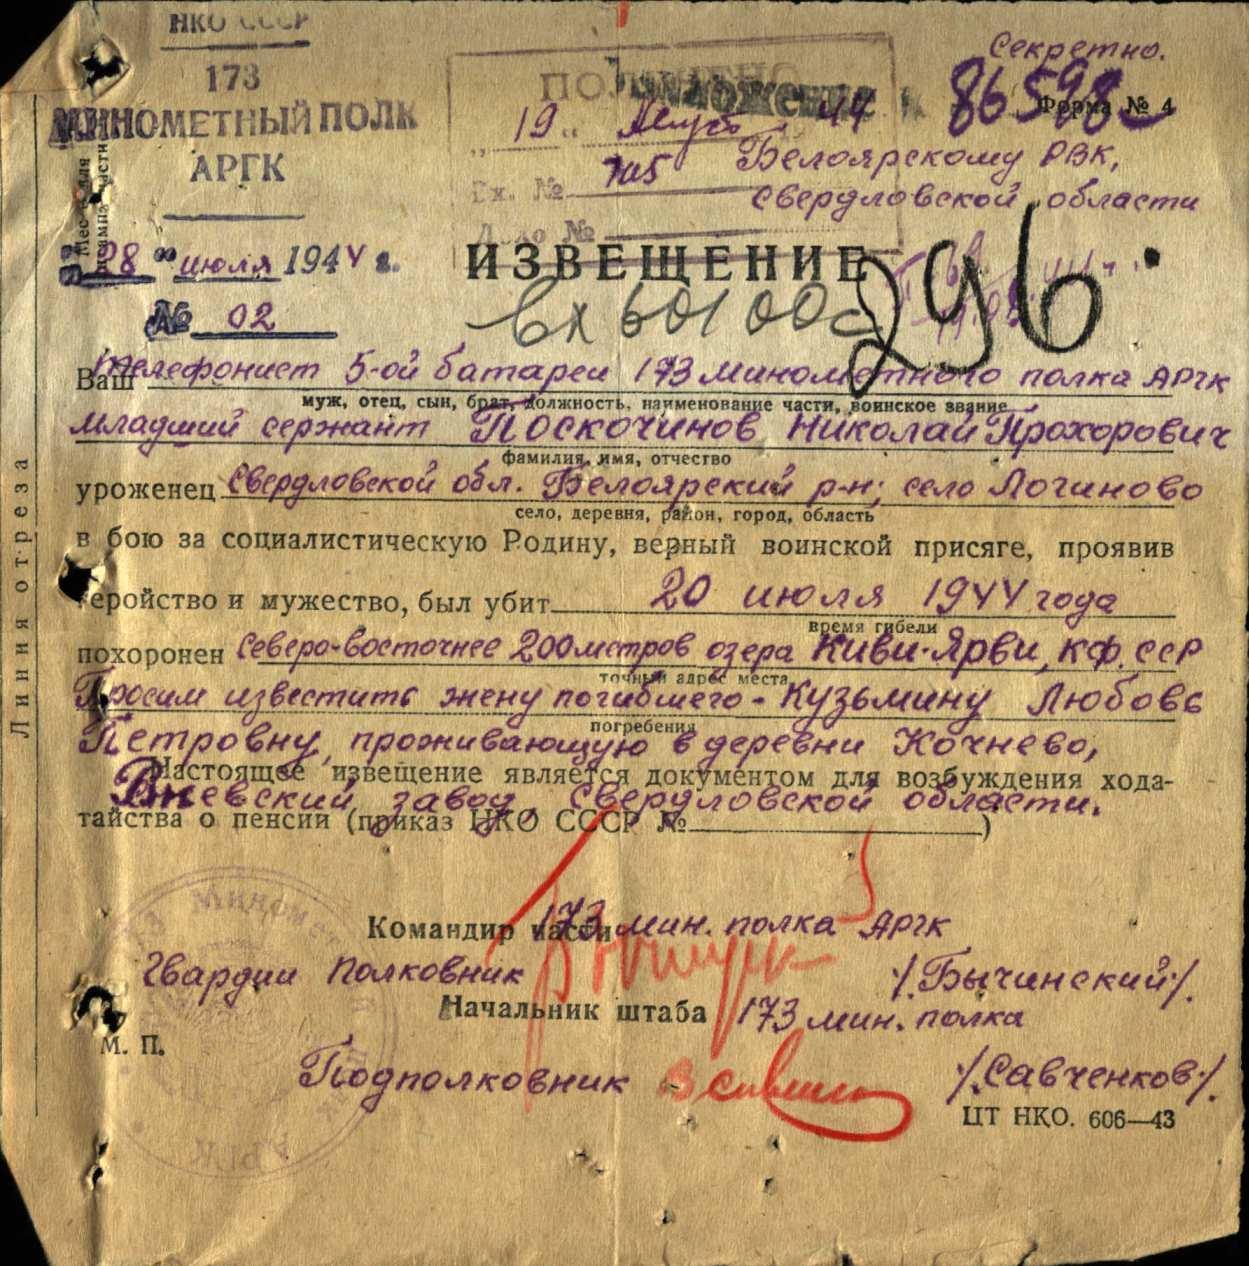 НКО СССР
173
МИНОМЕТНЫЙ ПОЛК
АРГК
Секретно.
Форма № 4
86598
19 " 44
Вх. № 705
№
Белоярскому РВК,
Свердловской области
"28" июля 1944 г.
№ 02
ИЗВЕЩЕНИЕ
Вх 60100с
296
Ваш телефонист 5-ой батареи 173 минометного полка АРГК
муж, отец, сын, брат, должность, наименование части, воинское звание
младший сержант Поскочинов Николай Прохорович
фамилия, имя, отчество
уроженец Свердловской обл. Белоярский р-н; село Логиново
село, деревня, район, город, область
в бою за социалистическую Родину, верный воинской присяге, проявив
геройство и мужество, был убит 20 июля 1944 года
время гибели
похоронен Северо-восточнее 200 метров озера Киви-Ярви, КФ.ССР
точный адрес места
Просим известить жену погибшего - Кузьмину Любовь
погребения
Петровну, проживающую в деревни Кочнево,
Настоящее извещение является документом для возбуждения хода-
завод, Свердловской области.
тайства о пенсии (приказ НКО СССР № )
Командир части 173 мин. полка АРГК
Гвардии Полковник /Бычинский/.
Начальник штаба 173 мин. полка
М. П.
Подполковник /Савченков/.
ЦТ НКО. 606—43
Линия отреза
173 Миномет
АРГК